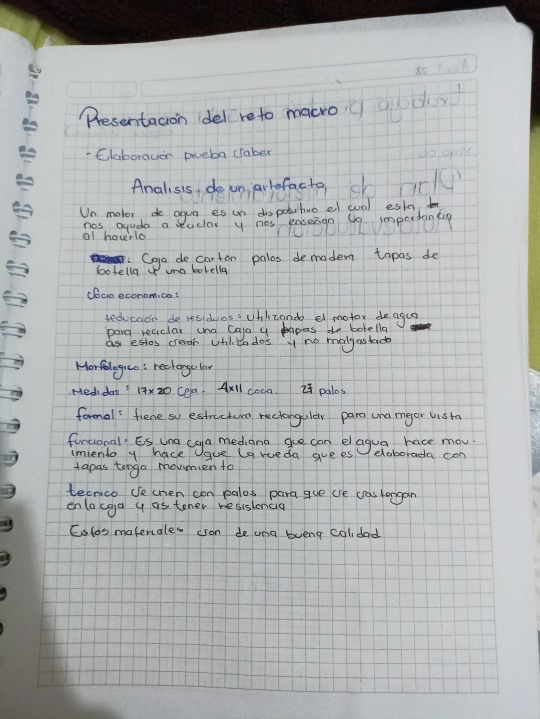 Presentación del reto macro
- Elaboración prueba saber
Analisis de un artefacto
Un motor de agua es un dispositivo el cual esta
nos ayuda a reciclar y nos enseña la importancia
al hacerlo
: Caja de carton palos de madera tapas de
botella y una botella
Socio economico:
reducción de residuos: utilizando el motor de agua
para reciclar una caja y papas de botella
asi estos crean utilizados y no malgastado
Morfologico: rectangular
Medidas: 17x20 Caja. 4x11 coca. 27 palos
formal: tiene su estructura rectangular para una mejor vista
funcional: Es una caja mediana que con el agua hace mov-
imiento y hace que la rueda que es elaborada con
tapas tenga movimiento
tecnico se unen con palos para que se sostengan
en la caja y as tener resistencia
Estos materiales son de una buena calidad